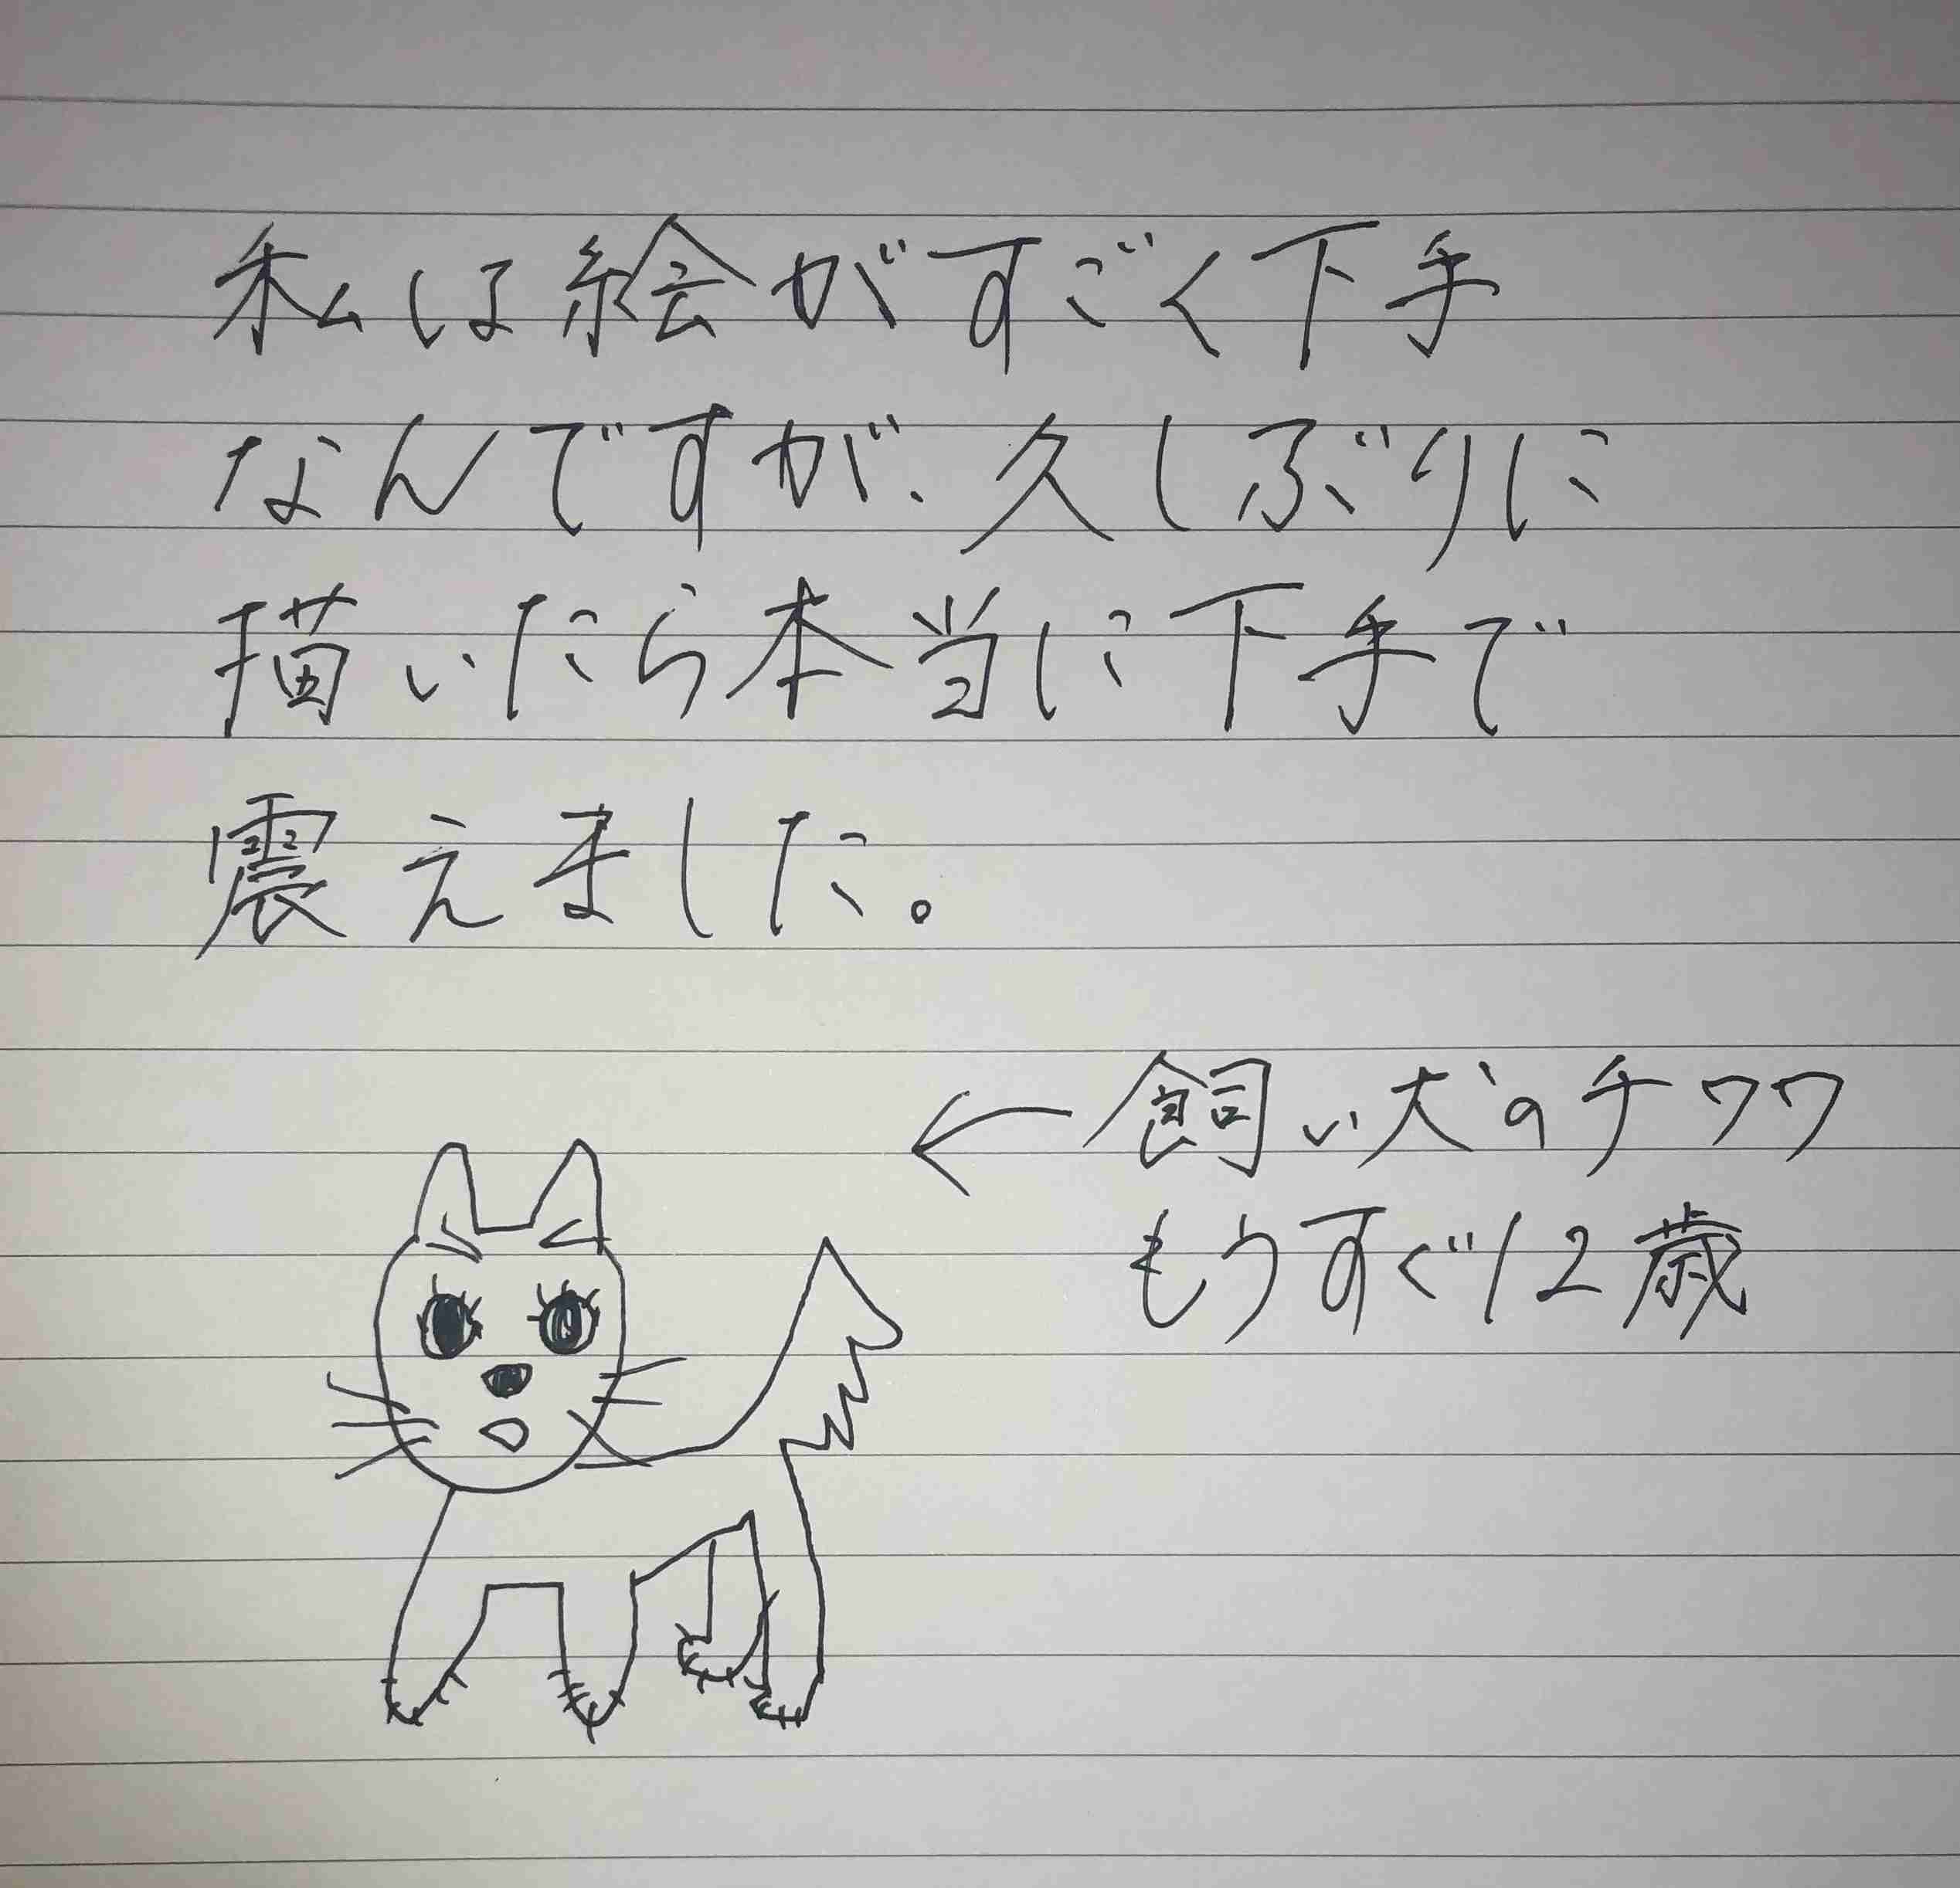 私は絵がすごく下手
なんですが、久しぶりに
描いたら本当に下手で
震えました。
←飼い犬のチワワ
もうすぐ12歳